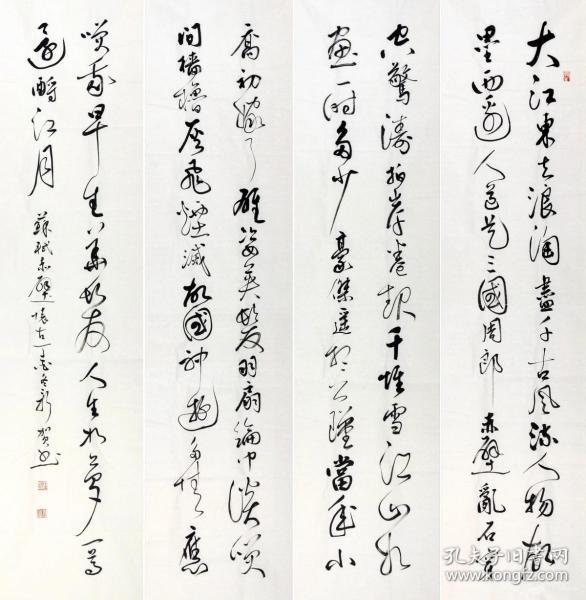 大江東去浪淘盡千古風流人物故
壘西邊人道是三國周郎赤壁亂石穿
空驚濤拍岸卷起千堆雪江山如
畫一時多少豪傑遙想公瑾當年小
喬初嫁了雄姿英發羽扇綸巾談笑
間檣櫓灰飛煙滅故國神遊多情應
笑我早生華髮人生如夢一尊
還酹江月 蘇軾赤壁懷古
孔夫子旧书网
www.kongfz.com